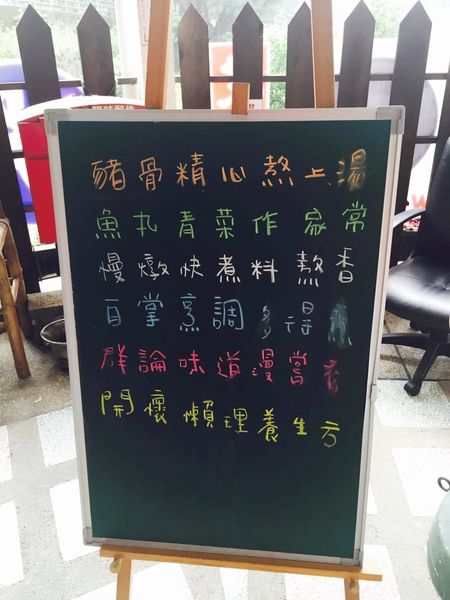 豬骨精心熬上湯
魚丸青菜作家常
慢燉快煮料熬香
百掌烹調多得
群論味道漫嘗
開懷懶理養生方